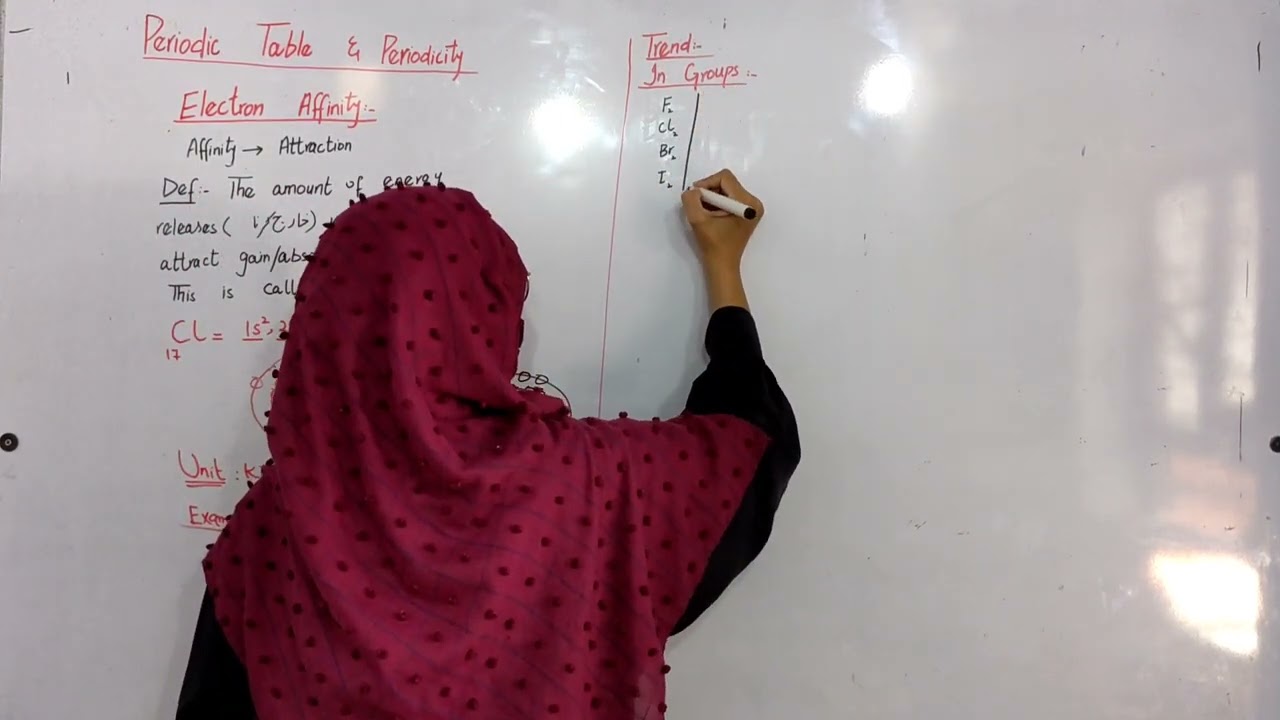 Periodic Table & Periodicity
Electron Affinity:-
Affinity → Attraction
Def:- The amount of energy
releases (
attract gain/abs
This is call
₁₇Cl = 1s²,
Unit : K
Exam
Trend:-
In Groups:-
F₂
Cl₂
Br₂
I₂